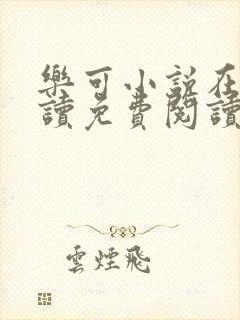 樂可小説在
讀免費閱讀
雲煙飛